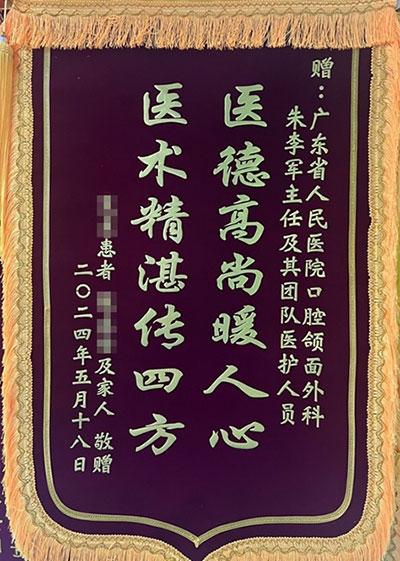 赠：广东省人民医院口腔颌面外科
朱李军主任及其团队医护人员
医德高尚暖人心
医术精湛传四方
患者 及家人 敬赠
二〇二四年五月十八日